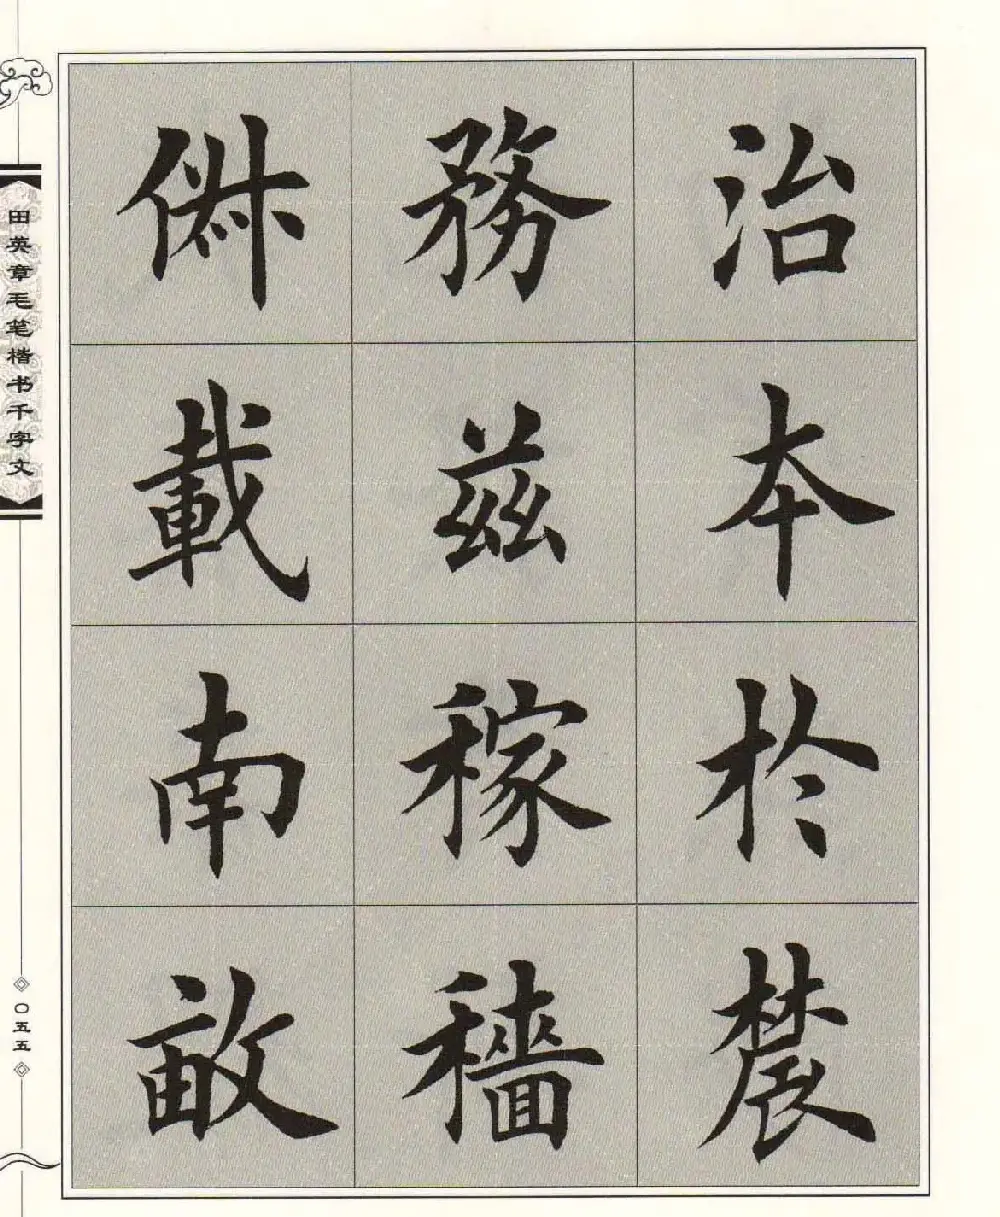 治本於辳
務茲稼穡
俶載南畝
田英章毛笔楷书千字文
〇五五